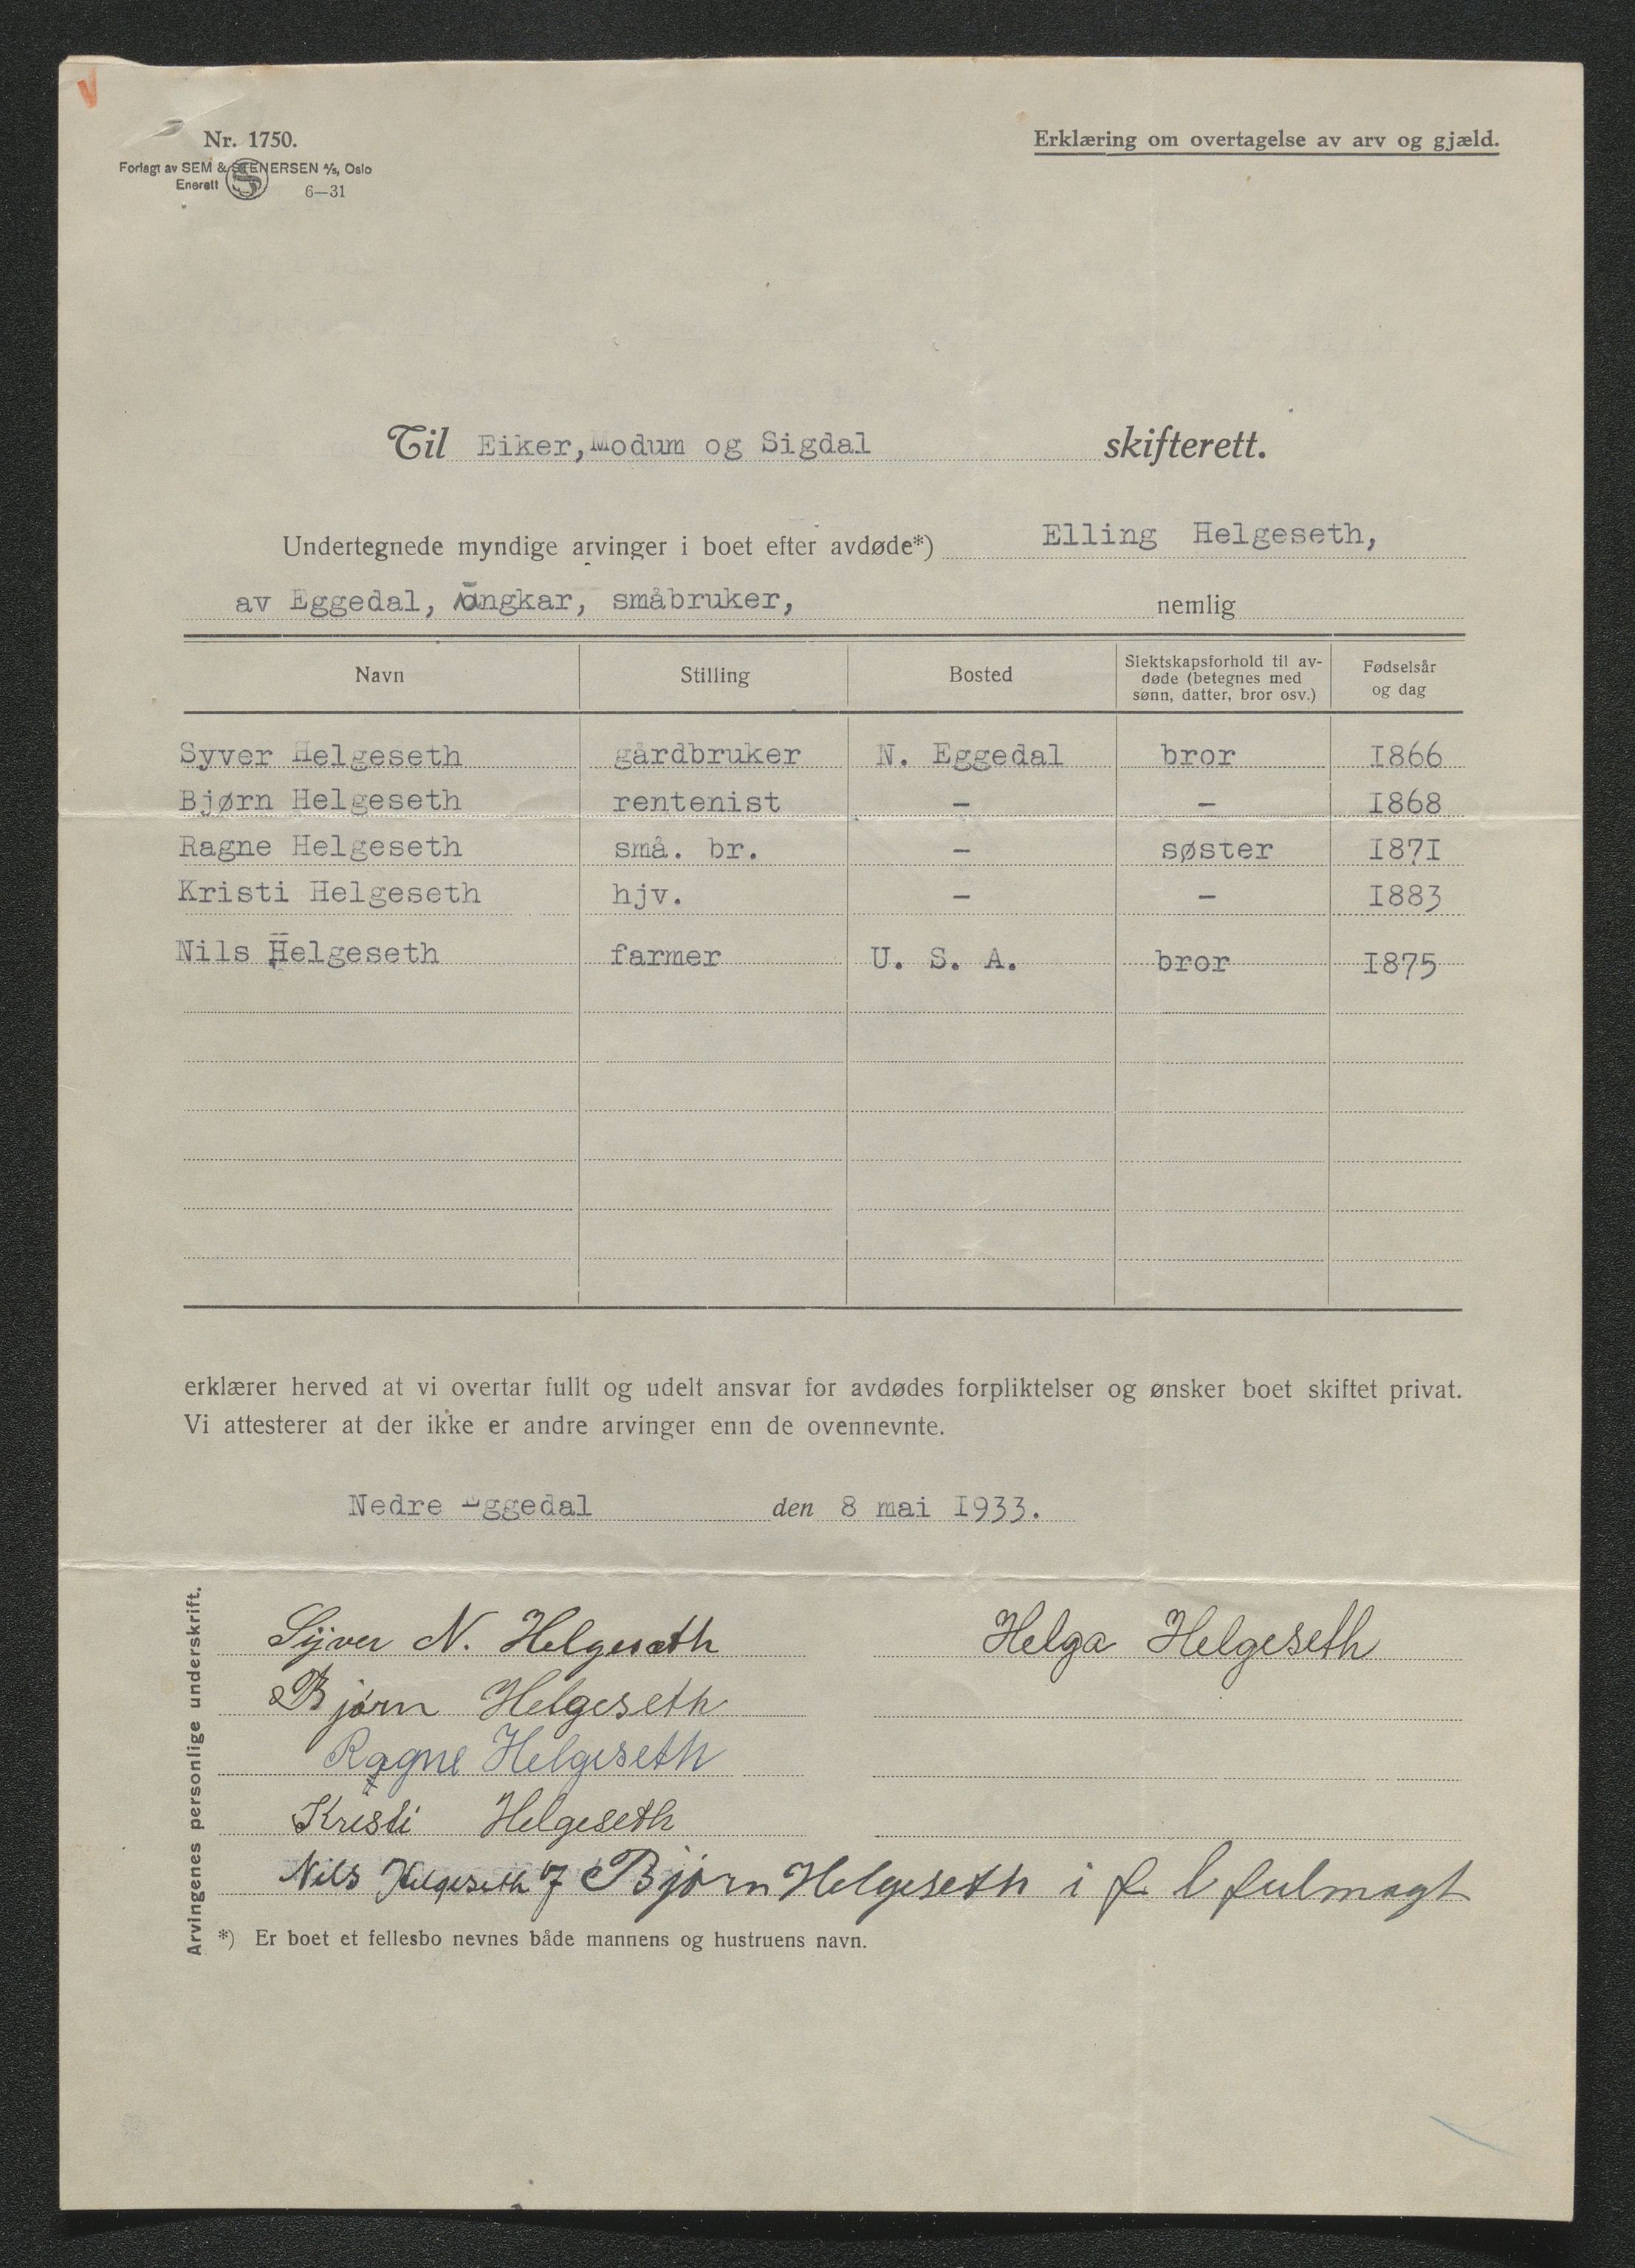 Nr. 1750.
Erklæring om overtagelse av arv og gjæld.
Forlagt av SEM & STENERSEN A/s, Oslo
Enerett 6—31
Til Eiker, Modum og Sigdal skifterett.
Undertegnede myndige arvinger i boet efter avdøde*) Elling Helgeseth,
av Eggedal, ungkar, småbruker, nemlig
Navn Stilling Bosted Slektskapsforhold til avdøde (betegnes med sønn, datter, bror osv.) Fødselsår og dag
Syver Helgeseth gårdbruker N. Eggedal bror 1866
Bjørn Helgeseth rentenist – – 1868
Ragne Helgeseth små. br. – søster 1871
Kristi Helgeseth hjv. – – 1883
Nils Helgeseth farmer U. S. A. bror 1875
erklærer herved at vi overtar fullt og udelt ansvar for avdødes forpliktelser og ønsker boet skiftet privat.
Vi attesterer at der ikke er andre arvinger enn de ovennevnte.
Nedre Eggedal den 8 mai 1933.
Arvingenes personlige underskrift.
Syver N. Helgeseth Helga Helgeseth
Bjørn Helgeseth
Ragne Helgeseth
Kristi Helgeseth
Nils Helgeseth Bjørn Helgeseth i f. l fulmagt
*) Er boet et fellesbo nevnes både mannens og hustruens navn.